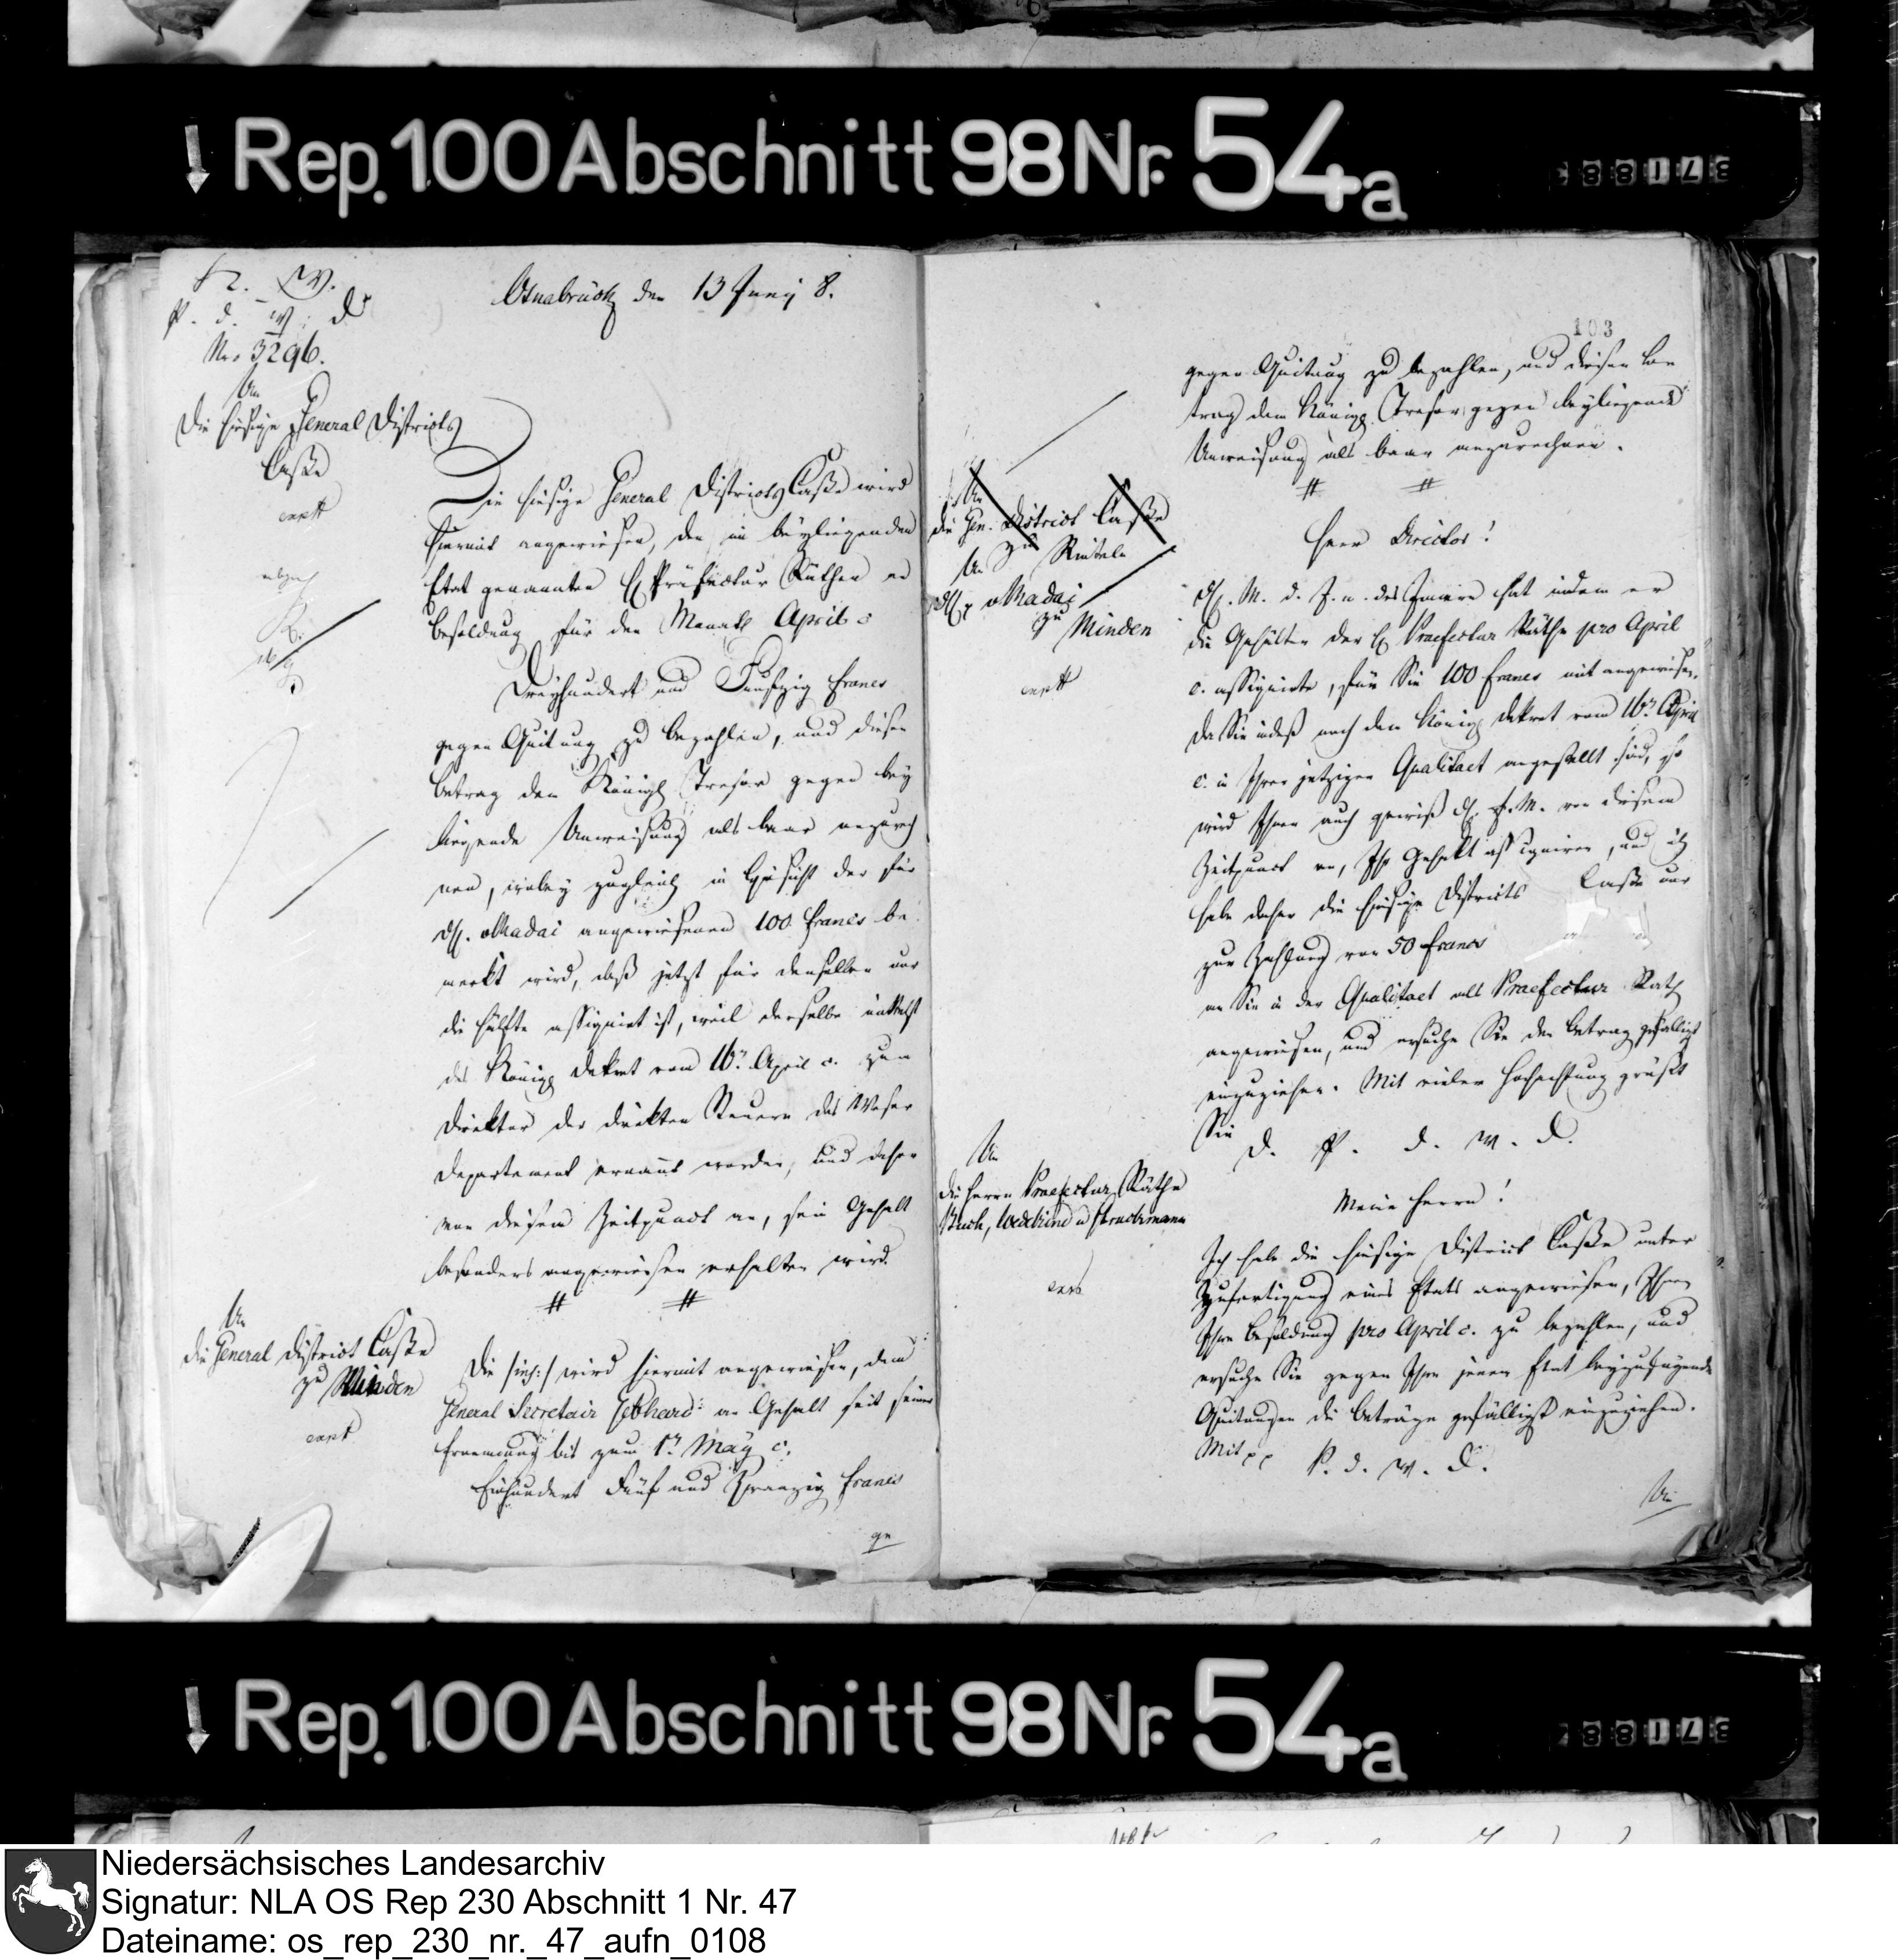 Rep. 100 Abschnitt 98 Nr. 54a
K. W.
P. d. W. D
Nro 3296.
Osnabrück den 13 Juny 8.
An
die hiesige General Districts
Casse
Die hiesige General Districts Casse wird
hiermit angewiesen, den im beyliegenden
Etat genannten H Präfectur Räthen an
Besoldung für den Monath April c
Dreyhundert und Funfzig francs
gegen Quitung zu bezahlen, und diesen
Betrag dem Königl Tresor gegen bey
liegende Anweisung als baar anzurech
nen, wobey zugleich in Hinsicht der für
H. vMadai angewiesenen 100 francs be
merkt wird, daß jetzt für denselben nur
die Hälfte assignirt ist, weil derselbe mittelst
des Königl Dekret vom 16n April c. zum
Direktor der direkten Steuern des Weser
Departement ernannt worden, und daher
von diesem Zeitpunct an, sein Gehalt
besonders angewiesen erhalten wird.
An
die General District Casse
zu Minden
Die /ins:/ wird hiermit angewiesen, dem
General Secretair Gebhard an Gehalt seit seiner
Ernennung bis zum 1n May c.
Einhundert Fünf und Zwanzig francs
ge
103
gegen Quitung zu bezahlen, und diesen Be
trag dem Königl Tresor gegen beyliegende
Anweisung als baar anzurechnen.
An
die Gen. District Casse
zu Rinteln
An
H. vMadai
zu Minden
Herr Director!
H. M. d. J. u. des Innern hat indem er
die Gehälter der H Praefectur Räthe pro April
c. assignirte, für Sie 100 francs mit angewiesen.
Da Sie indeß nach dem Königl Dekret vom 16n April
c. in Ihrer jetzigen Qualitaet angestellt sind, so
wird Ihnen auch gewiß H. F. M. von diesem
Zeitpunct an, Ihr Gehalt assigniren, und ich
habe daher die hiesige Districts Casse nur
zur Zahlung von 50 francs
an Sie in der Qualitaet als Praefectur Rath
angewiesen, und ersuche Sie den Betrag gefälligst
einzuziehen. Mit vieler Hochachtung grüßt
Sie D. P. d. W. D.
An
die Herrn Praefectur Räthe
Buch, Wedekind u Struckmann
Meine Herrn!
Ich habe die hiesige District Casse unter
Zufertigung eines Etats angewiesen, Ihnen
Ihre Besoldung pro April c. zu bezahlen, und
ersuche Sie gegen Ihre jenem Etat beyzufügende
Quitungen die Beträge gefälligst einzuziehen.
Mit pp P. d. W. D.
An
Rep. 100 Abschnitt 98 Nr. 54a
Niedersächsisches Landesarchiv
Signatur: NLA OS Rep 230 Abschnitt 1 Nr. 47
Dateiname: os_rep_230_nr._47_aufn_0108